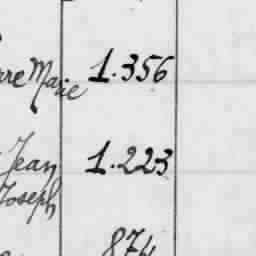 Marie 1.356
Jean 1.223
Joseph
874